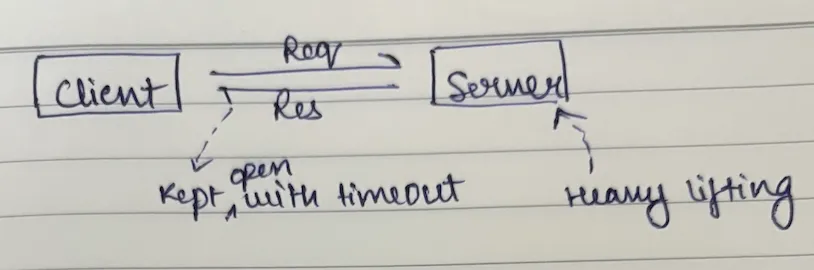 Req
Client
Server
Res
Kept open with timeout
Heavy lifting